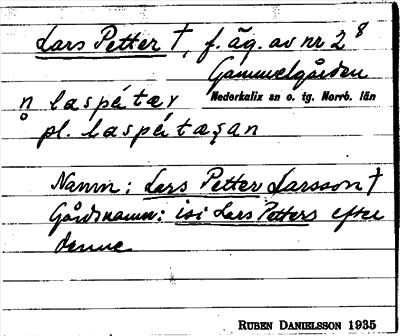 Lars Petter †, f. äg. av nr 2⁸
Gammelgården
Nederkalix sn o. tg. Norrb. län
n̥ laspétær
pl. laspétæşan
Namn: Lars Petter Larsson †
Gårdsnamn: isi Lars Petters efter
denne
RUBEN DANIELSSON 1935